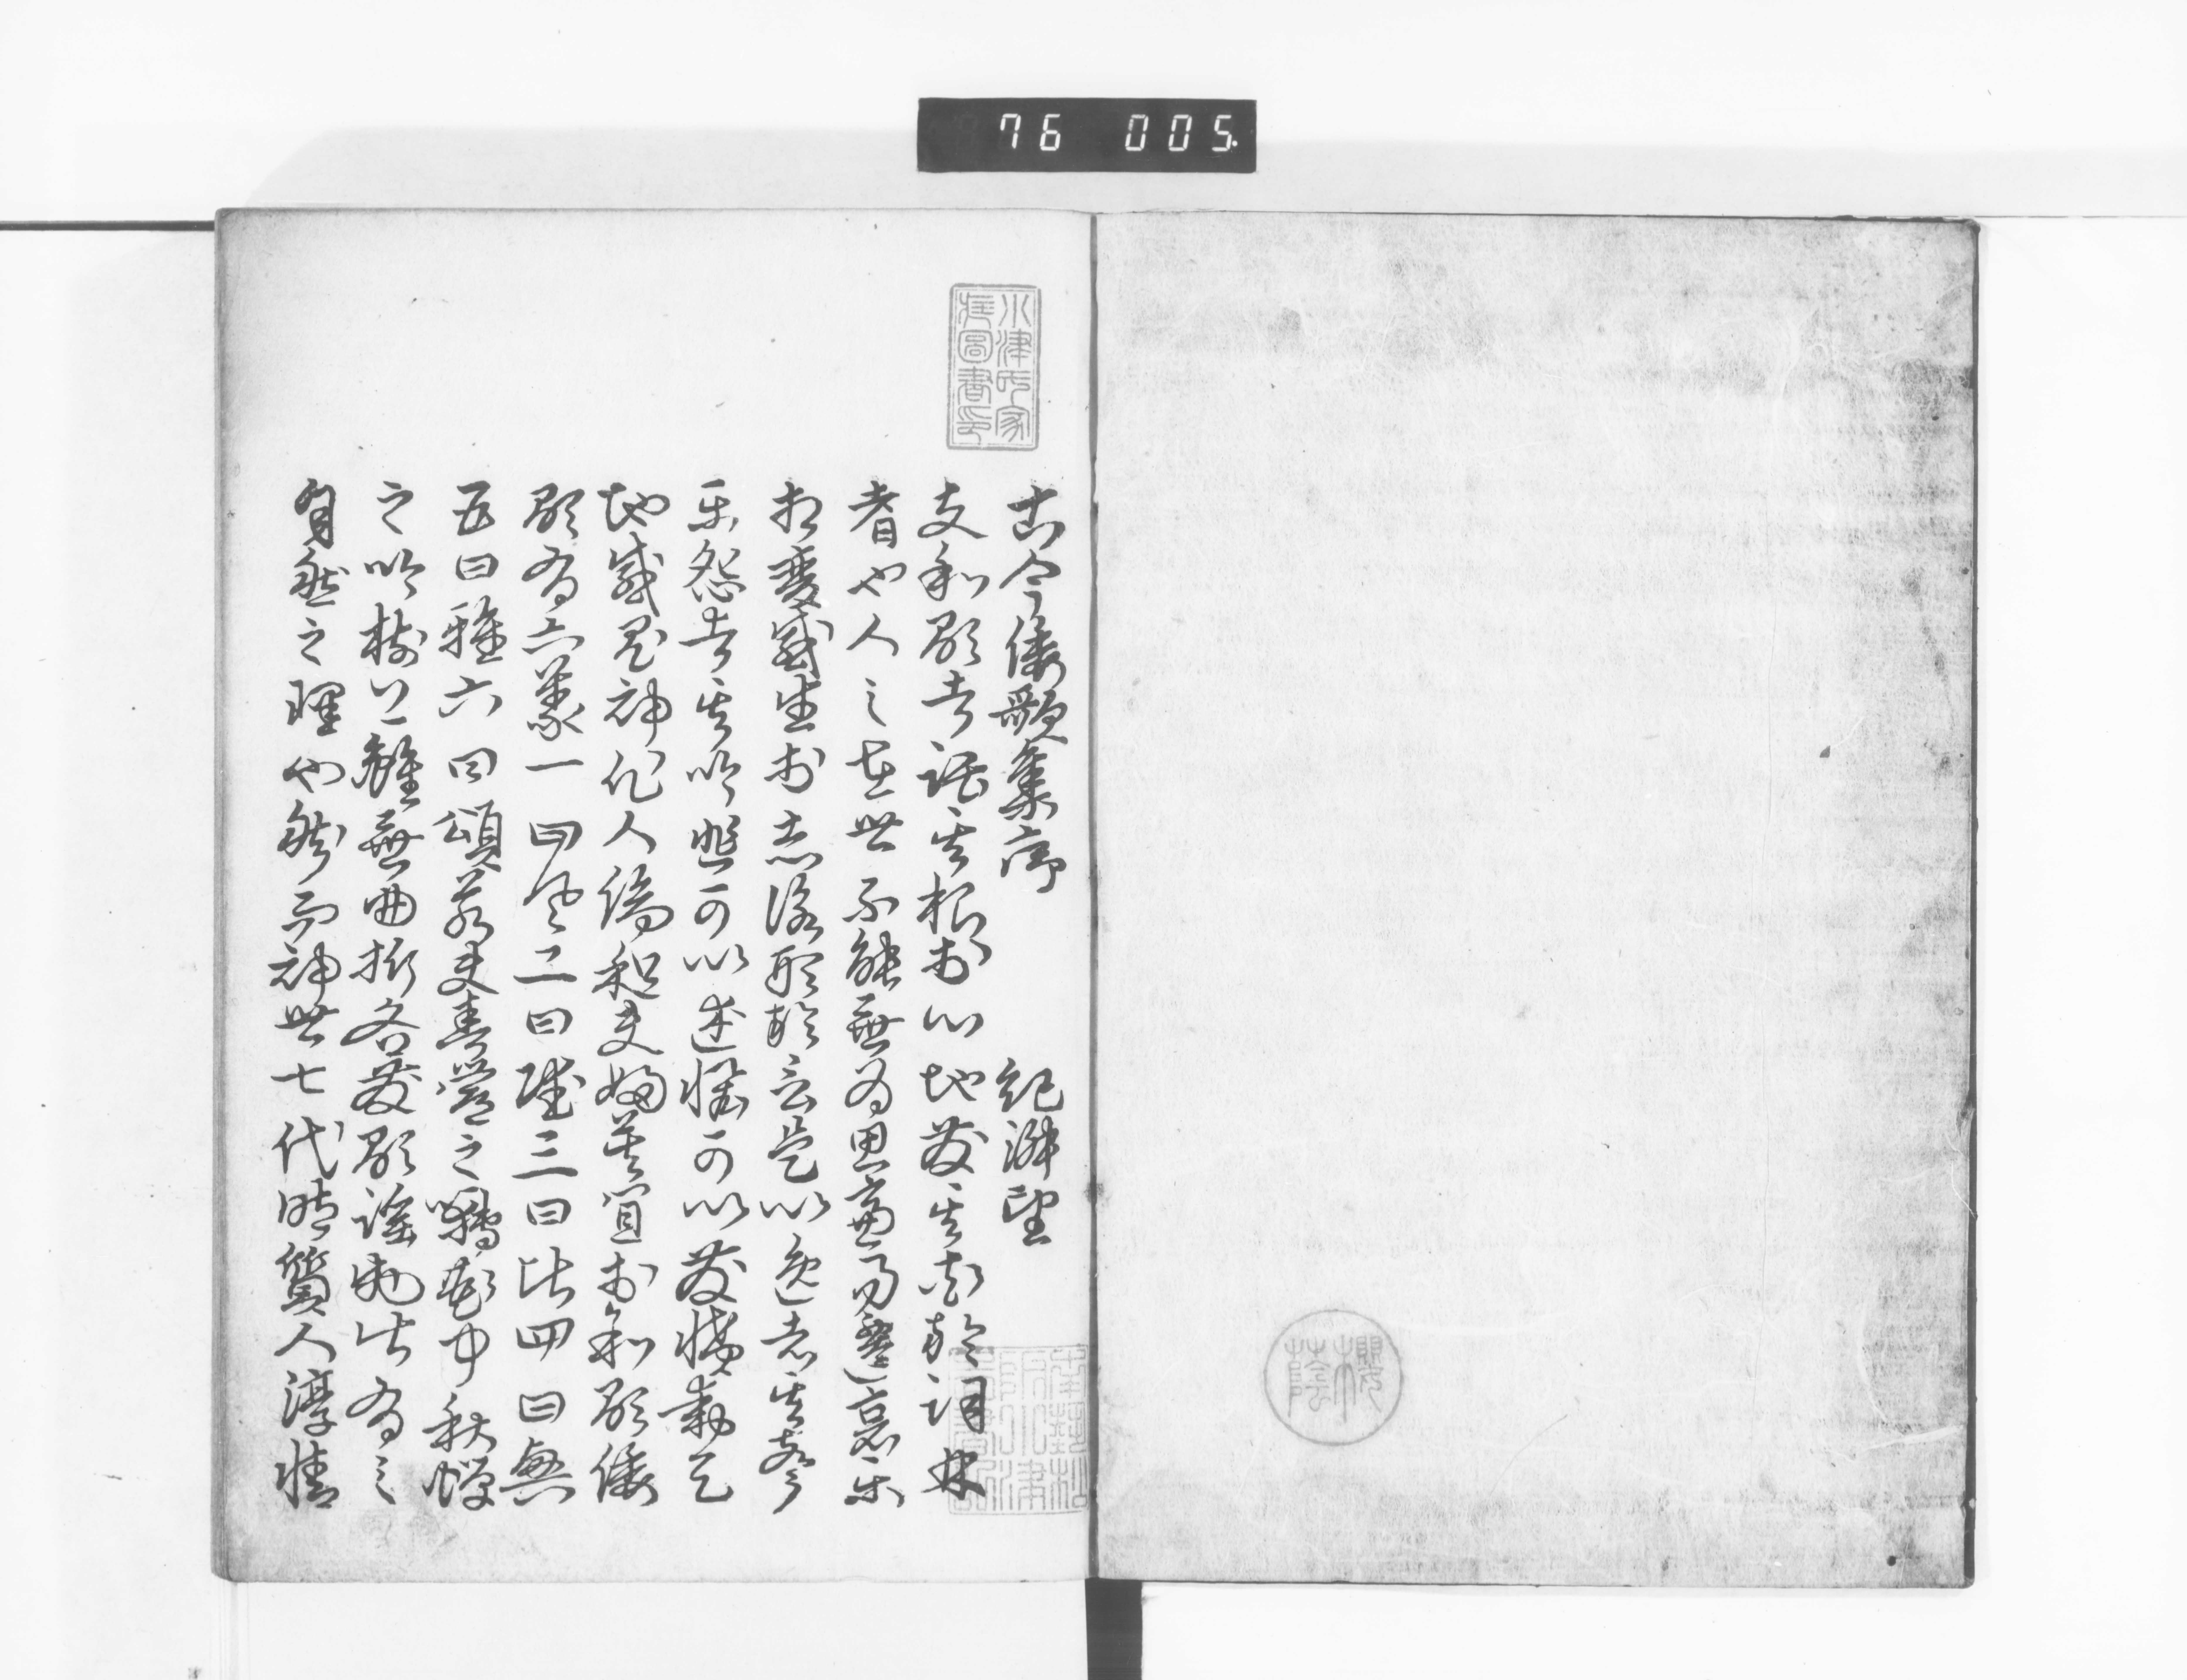 76 005.
小津氏家
圖書印
古今倭歌集序 紀淑望
夫和歌者託其根於心地發其花於詞林
者也人之在世不能無為思慮易遷哀樂
相變感生於志詠形於言是以逸者其聲
樂怨者其吟悲可以述懷可以發憤動天
地感鬼神化人倫和夫婦莫宜於和歌倭
歌有六義一曰風二曰賦三曰比四曰興
五曰雅六曰頌若夫春鶯之囀花中秋蟬
之吟樹上雖無曲折各發歌謡物皆有之
自然之理也然而神世七代時質人淳情